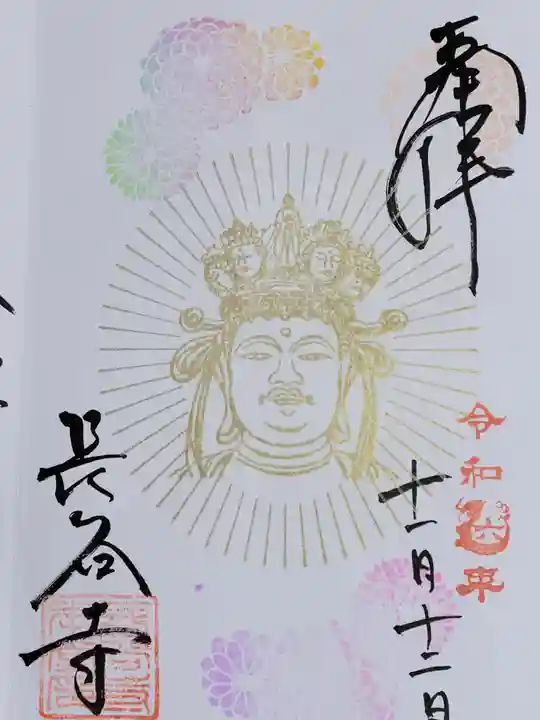 奉拝
令和六年
十一月十二日
長谷寺